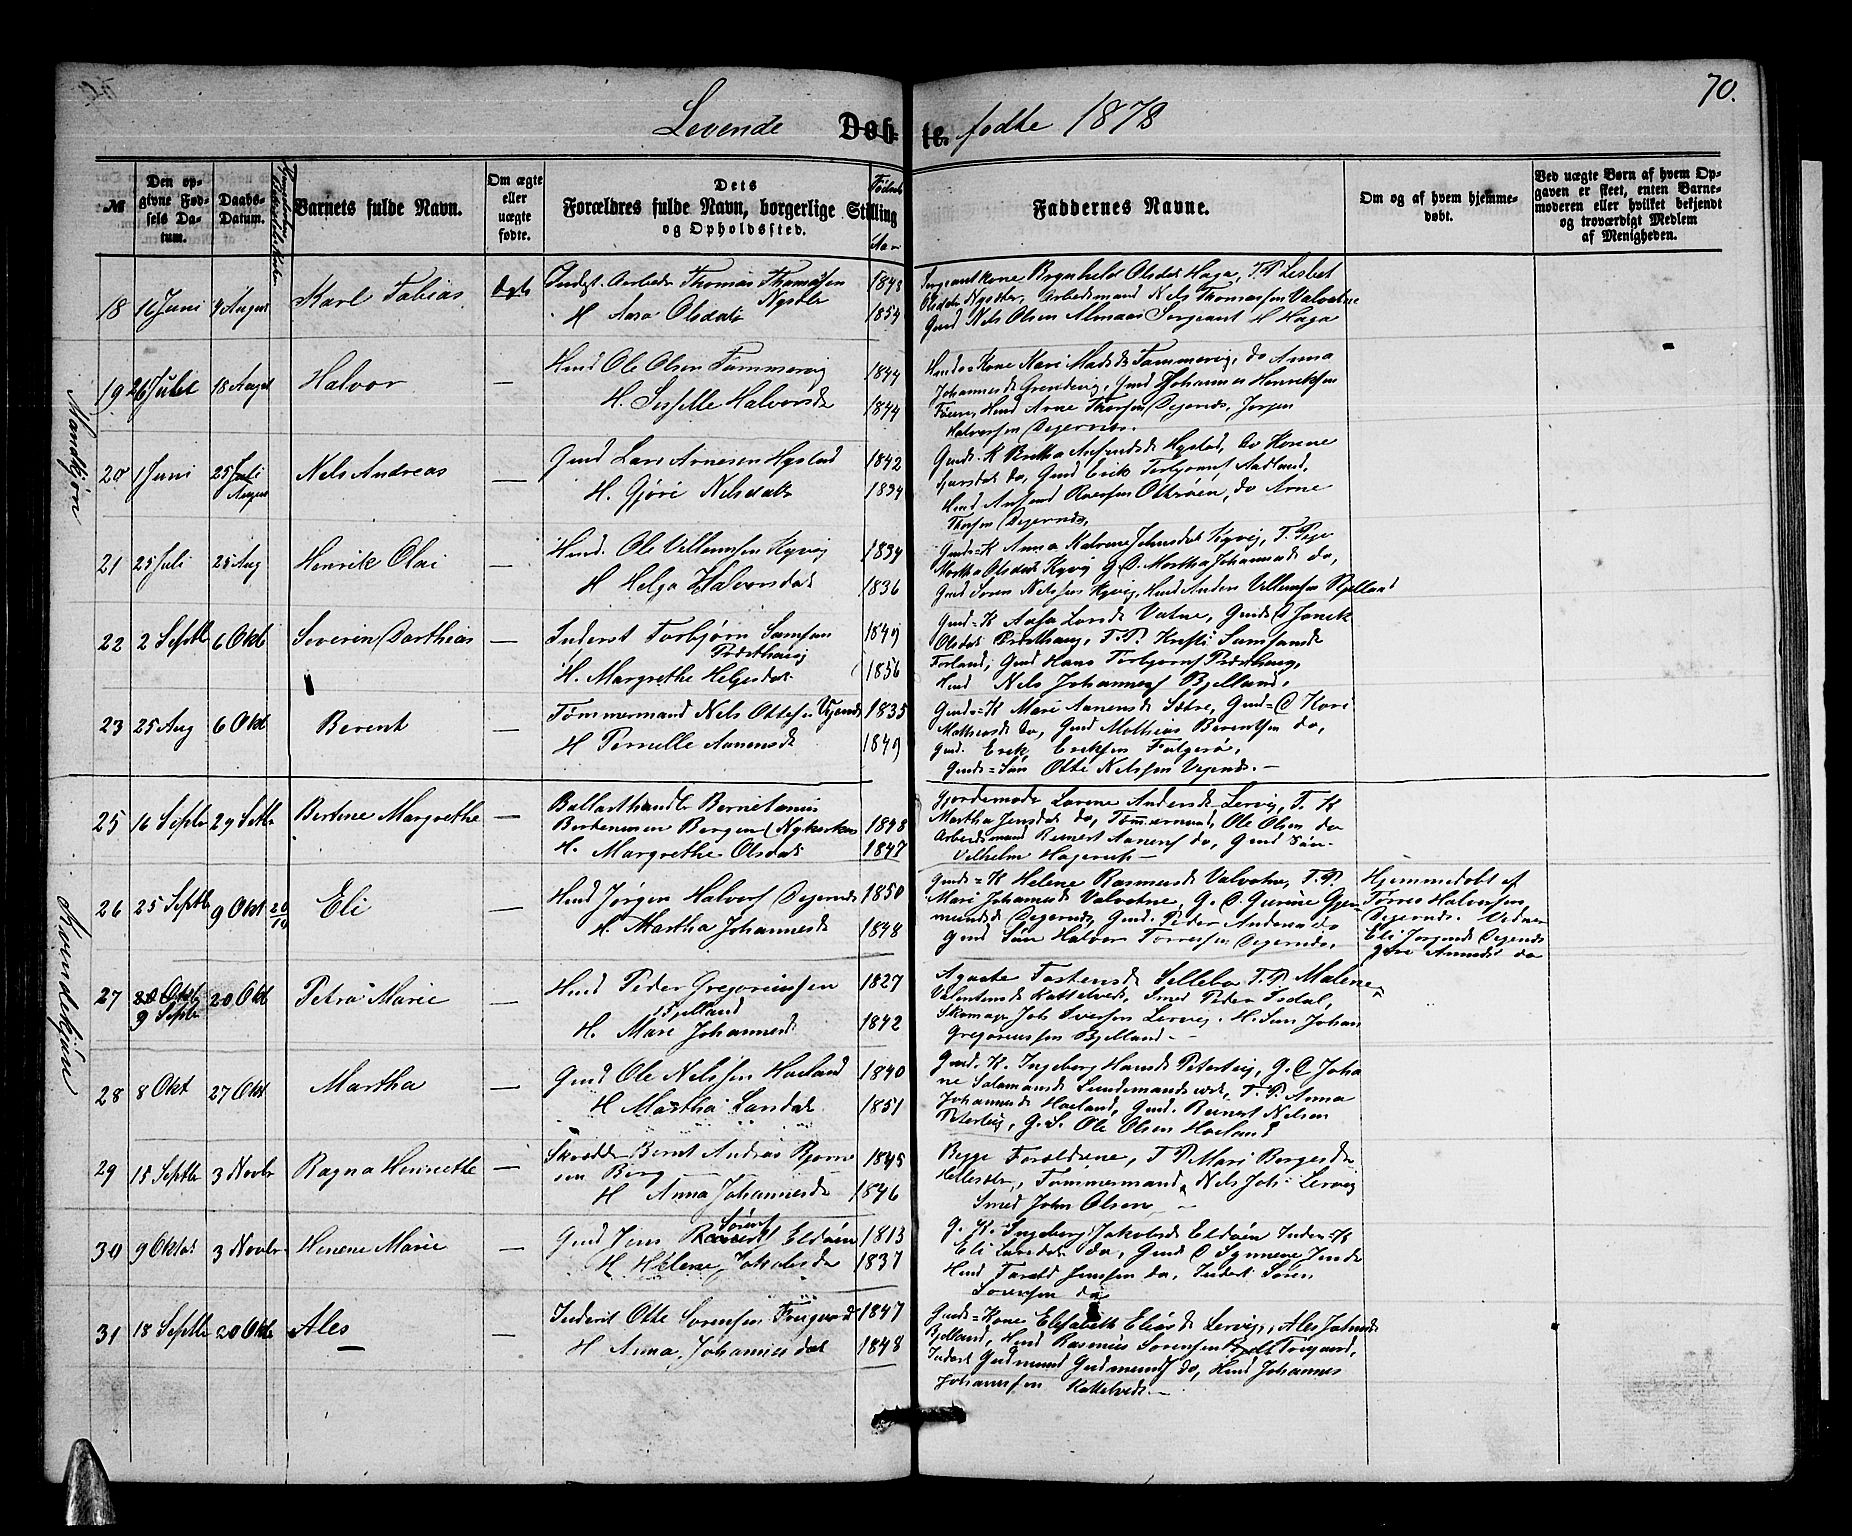 70.
Levende Døb-te fødte 1878
№
Den op-
givne Fød-
sels Da-
tum.
Daabs-
Datum.
Barnets fulde Navn.
Om ægte
eller
uægte
fødte.
Dets
Forældres fulde Navn, borgerlige Stilling
og Opholdssted.
Føds
Aar
Faddernes Navne.
Om og af hvem hjemme-
døbt.
Ved uægte Børn af hvem Op-
gaven er skeet, enten Barne-
moderen eller hvilket bekjendt
og troværdigt Medlem
af Menigheden.
Mandkjøn
18 16 Juni 4 August Karl Tobias ægte
Inderst. Arbeider Thomas Thomassen 1848
Nysæter
H Aasa Olsdatr 1854
Sergeantkone Brynhilde Olsdatr Haga, T. P. Lisbet
Olsdatr Nysæter, Arbeidsmand Nels Thomassen Valvatne
Gmd Nels Olsen Almaas Sergeant H Haga
19 26 Juli 18 August Halvor —
Hmd Ole Olsen Tømmervig 1844
H. Siselle Halvorsdr 1844
Hmds Kone Kari Madsdr Tømmervig, do Anna
Johannesdr Grindevig, Gmd Johannes Henriksen
Føien, Hmd Arne Thorsen Digernes, Jørgen
Halvorsen Digernes.
20 1 Juni 25 Juli
August
Nels Andreas —
Gmd Lars Arnesen Hystad 1842
H. Gjøri Nelsdatr 1834
Gmds. K Brita Amundsdr Hystad, do
Larsdr do, Gmd Erik Torbjørns Aadland,
Hmd do Arne
Thorsen Digernes,
21 25 Juli 25 Aug Henrik Olai —
Hmd. Ole Villumsen Kyvig 1834
H Helga Halvorsdatr 1836
Gmds=K Anna Katrine Johnsdatr Kyvig, T. Pige
Martha Olsdatr Kyvig G. D. Martha Johannesdr do,
Gmd Søren Nelsen Kyvig, Hmd Anders Villumsen Bjelland
22 2 Septbr 6 Oktb Severin Dorthias —
Inderst Torbjørn Samson 1849
Præsthaug
H. Margrethe Helgesdatr 1856
Gmds=K Aasa Larsdr Vatne, Gmds D
Olsdatr Præsthaug, T. P. Kristi Samsonsdr
Førland, Gmd Hans Torbjørns Præsthaug,
Hmd Nels Johanness Bjelland,
23 25 Aug 6 Okt Berent —
Tømmermand Nels Ottesen Vejernes 1835
H Pernelle Aanensdr 1849
Gmds=K Mari Aanensdr Sætre, Gmds D Kari
Mathiasdr do, Gmd Mathias Berentsen do,
Gmd. Erik Eriksen Folgerø,
Gmds=Søn Otte Nelssen Vejernes. —
Kvindekjøn
25 16 Septbr 29 Setbr Bertine Margrethe —
Ballasthandler Bernitanius
Berdenesen Bergen (Nykirken 1848
H. Margrethe Olsdatr 1847
Gjordemoder Lovene Andersdr Lervig, T. K
Martha Jensdatr do, Tømmermand, Ole Olsen do
Arbeidsmand Bernert Aanens do, Gmd Søn
Vilhelm Hagerup —
26 25 Septbr 9 Okt 20/10 Eli —
Hmd Jørgen Halvors Digernes 1850
H. Martha Johannesdr 1848
Gmds=K Helene Rasmusdr Valvatne, T. P.
Mari Johannesdr Valvatne, G. D. Gurine Gjer
mundsdr Digernes, Gmd. Peder Andersen do
Gmd Søn Halvor Torresen Digernes.
Hjemmedøbt af
Torres Halvorsen
Digernes. Vidner
Eli Jørgensdr Digernes
Amundsdr do
27 20 Oktb
9 Septbr
20 Okt Petra Marie —
Hmd Peder Gregoriussen 1827
Bjelland
H. Mari Johannesdr 1842
Agaate Tostensdr Sillebø T. P. Malene
Valentinsdr Kattelveds, Smed Peder Isdal,
Skomager Joh Iversen Lervig. H. Søn Johan
Gregoriussen Bjelland —
28 8 Okt 27 Okt Martha —
Gmd Ole Nelssen Hovland 1840
H Martha Larsdatr 1851
Gmd. K. Ingeborg Hansdr Petersvig, G. D Joha
ne Salamonsdr Lundemandsverk, T. P. Anna
Johannesdr Hovland, Gmd. Bernert Nelsen
Petersvig, G. S. Ole Olsen Hovland
29 15 Septbr 3 Novbr Ragna Henriette —
Skrædder Bernt Andreas Bjørn 1845
sen Berg
H Anna Johannesdr 1846
Begge Forældrene, T P Mari Børgesdr
Hellesøen, Tømmermand Nels Joh. Lervig
Smed John Olsen —
30 9 Oktbr 3 Novbr Henene Marie —
Sørens
Gmd Jens Eldøen 1813
H Helene Jakobsdr 1837
G. K. Ingeborg Jakobsdr Eldøen Inders K
Eli Larsdatr do, Gmd D Synneve Jensdr
Hmd Tarald Jenssen do, Inderst Søren
Sørensen do
31 18 Septbr 20 Oktb Ales —
Inderst Otte Sørensen Frugaard 1847
H Anna Johannesdatr 1848
Gmds=Kone Elisabeth Eliasdr Lervig, Ales Johnsdr
Bjelland, Hmd Rasmus Sørensen Frugaard,
Inderst Gudmund Gudmunds do, Hmd Johannes
Johannssen Kattelveds —